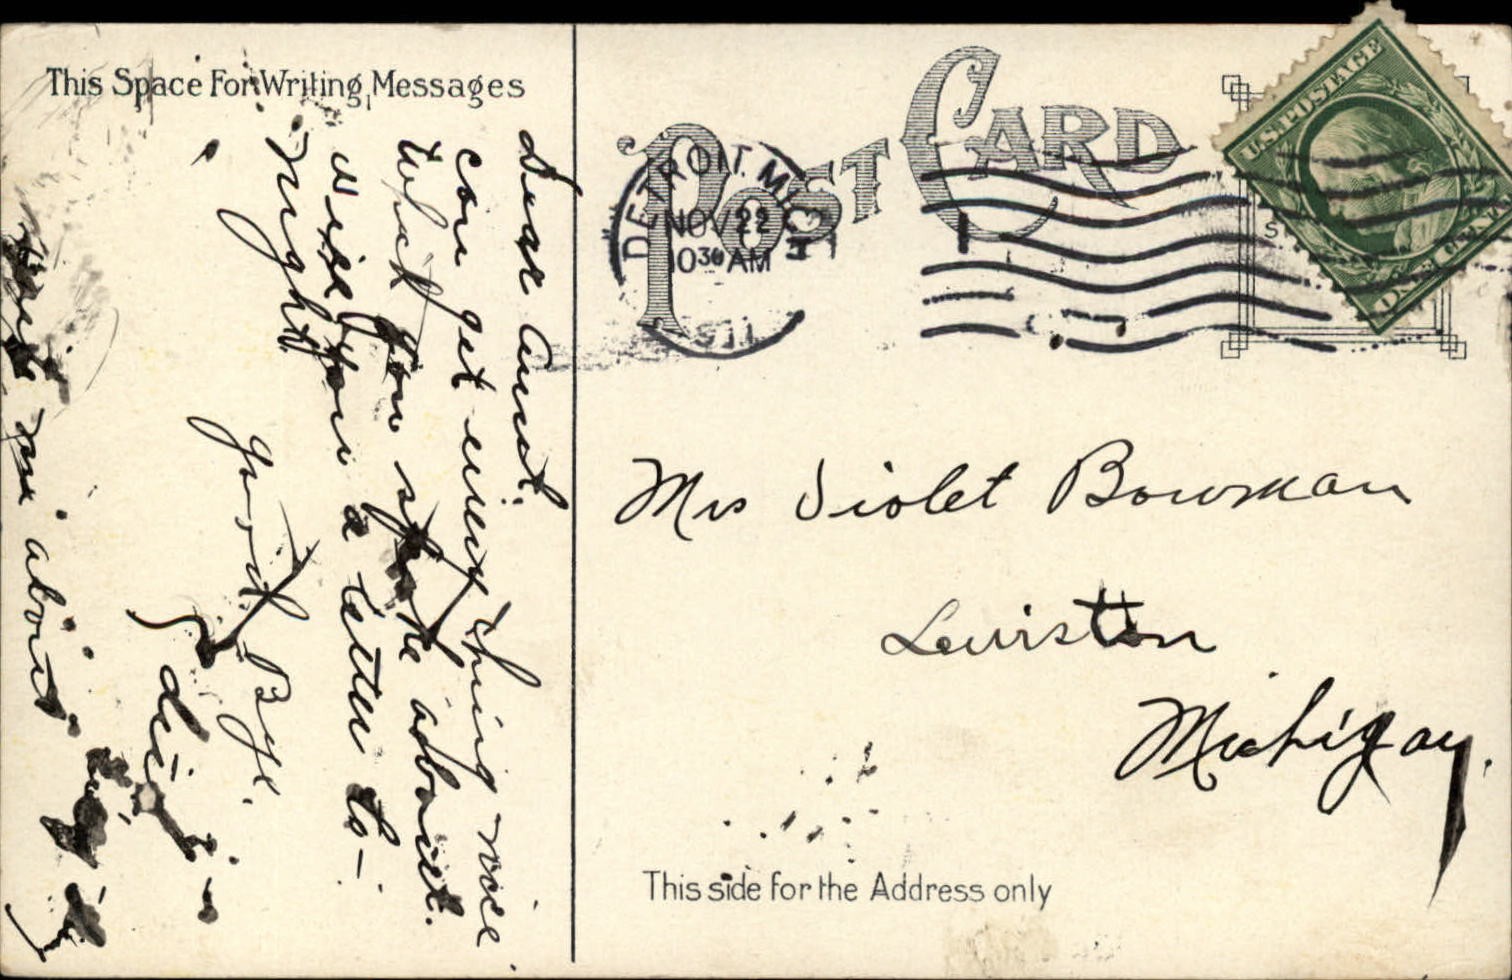 This Space For Writing Messages
Dear Aunt.
can get every thing nice
which you spoke about.
will you a letter to-
night
Good Bye.
me about
POST CARD
DETROIT. MICH
NOV 22
10 30 AM
U.S. POSTAGE
ONE CENT
Mrs Violet Bowman
Lewiston
Michigan.
This side for the Address only